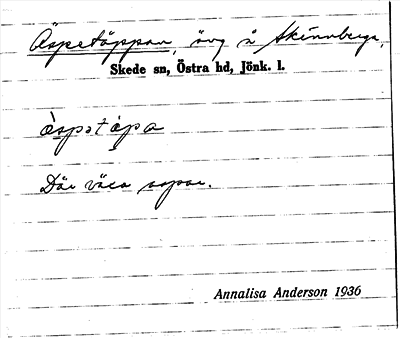 Äspetäppan, äng å Skinnberga,
Skede sn, Östra hd, Jönk. l.
Där växa aspar.
Annalisa Anderson 1936